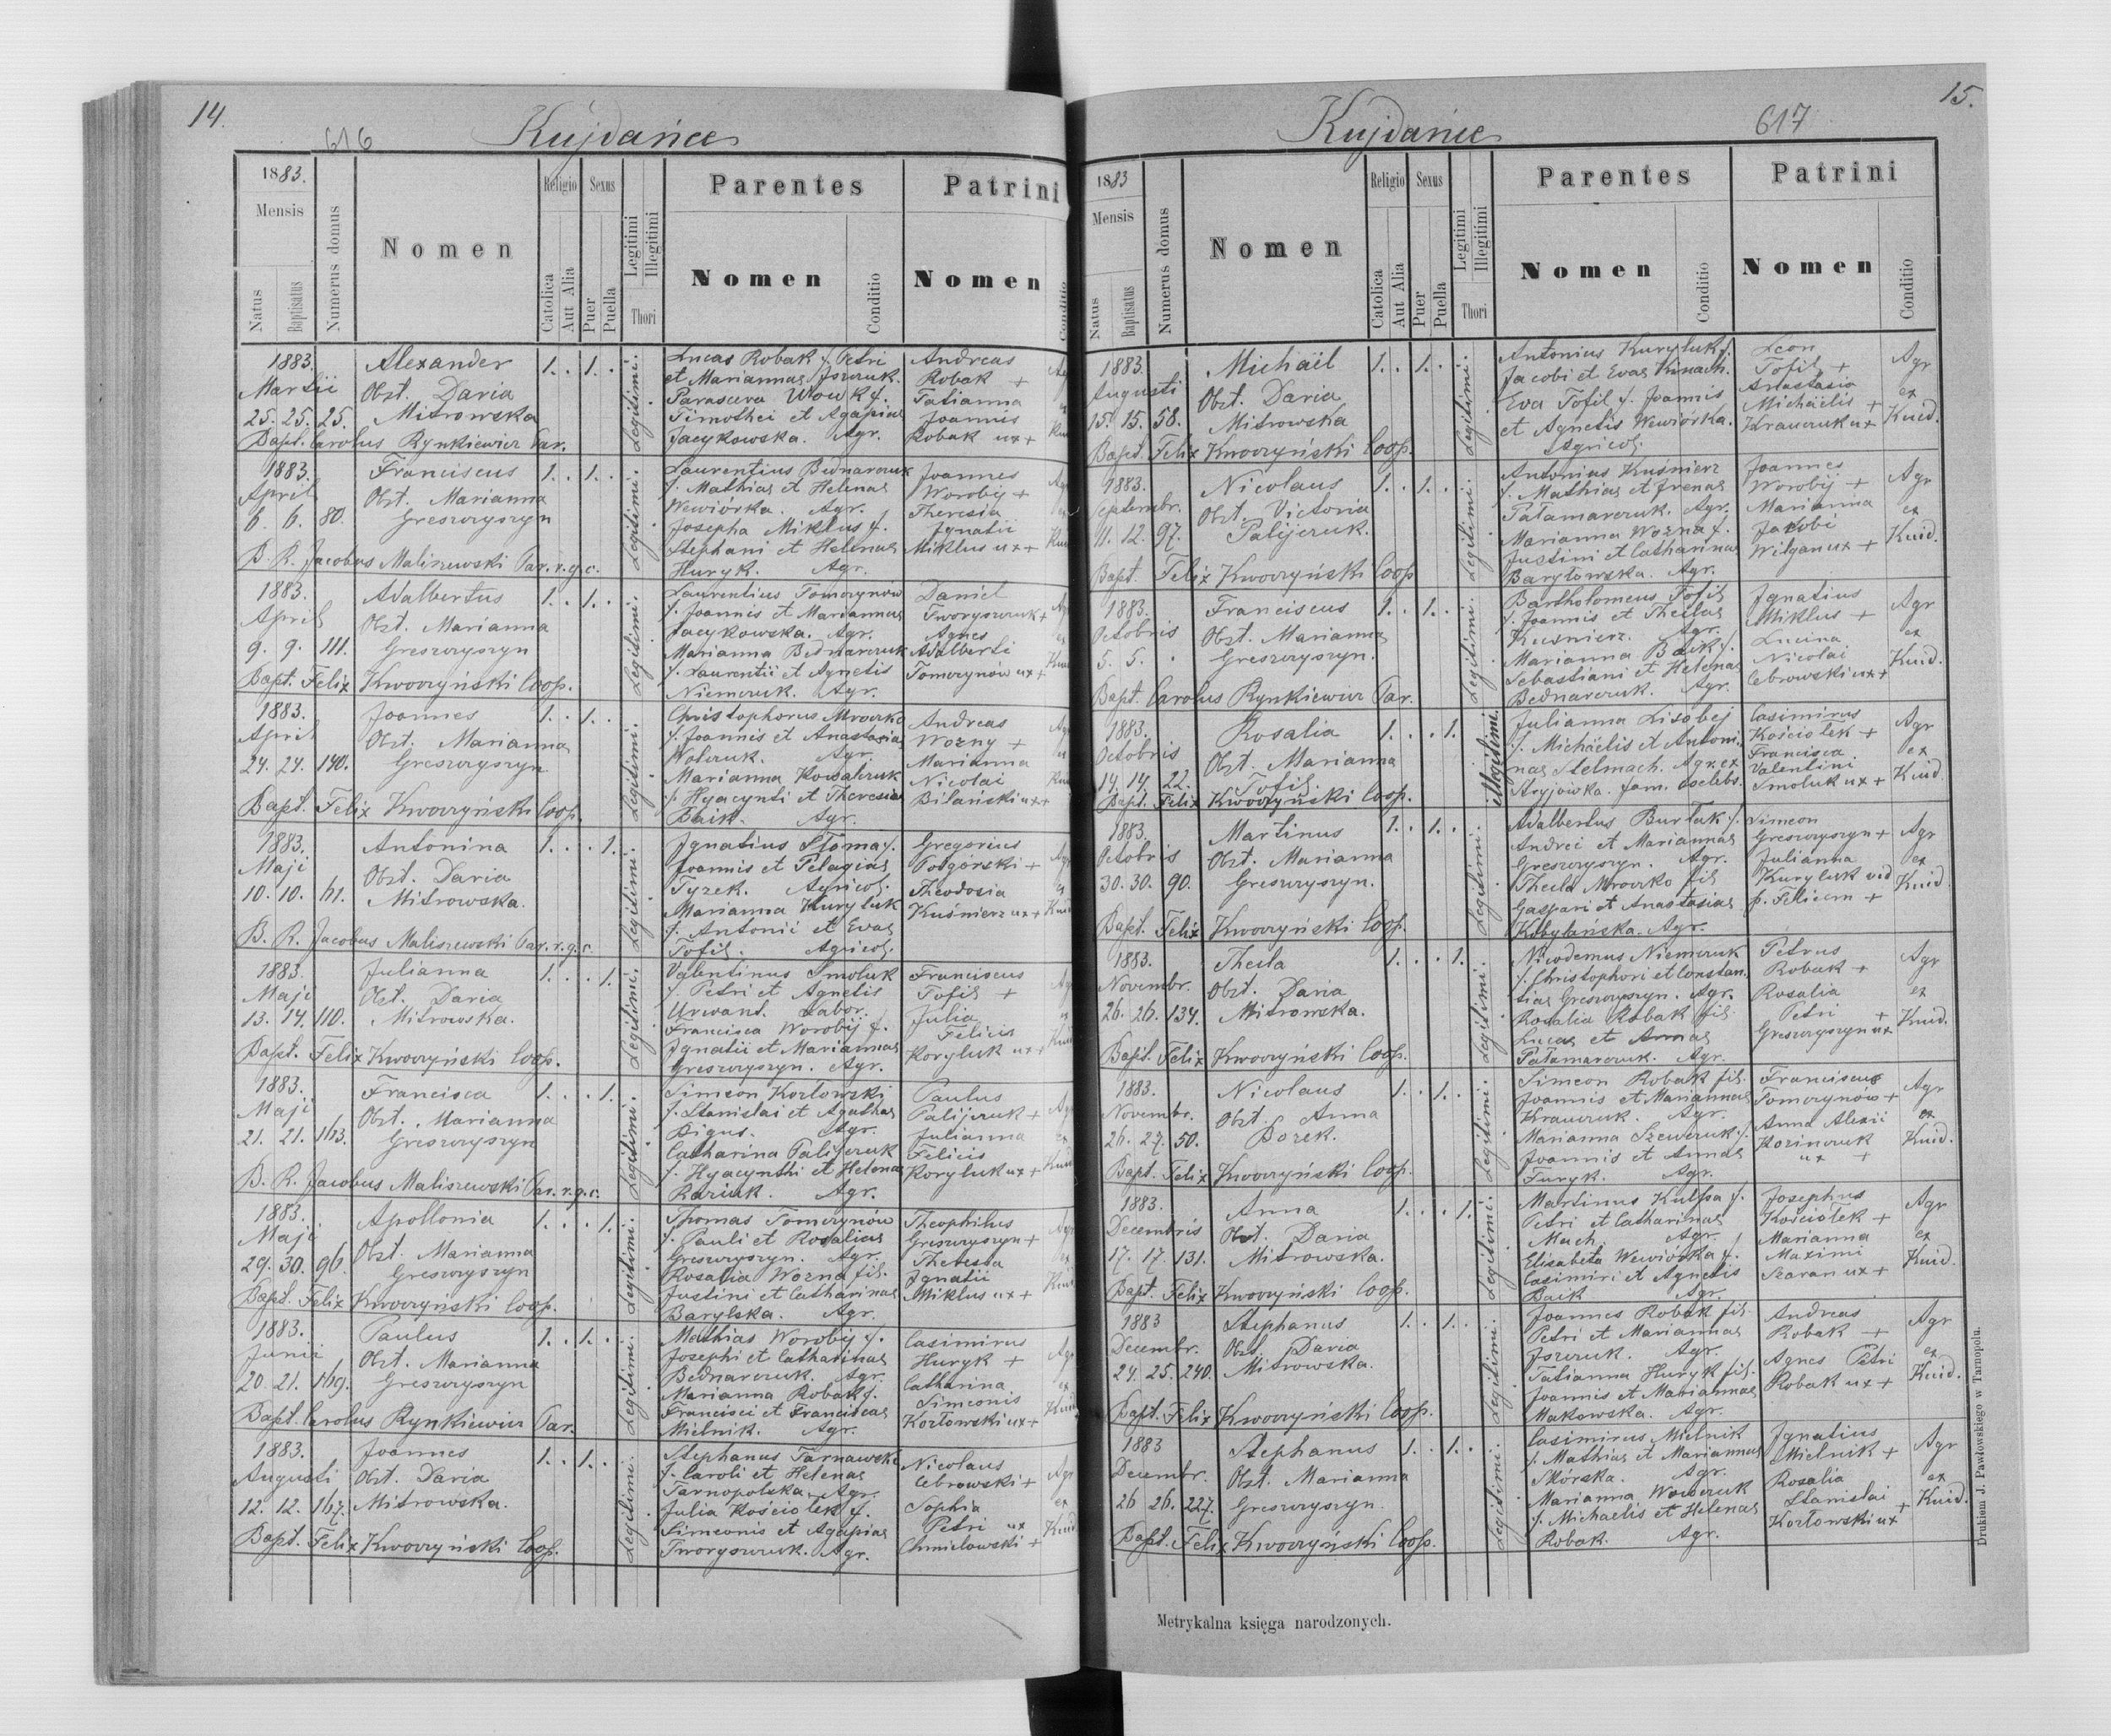 14.
616
Kujdańce
1883.
Mensis
Natus
Baptisatus
Numerus domus
Nomen
Religio
Catolica
Aut Alia
Sexus
Puer
Puella
Legitimi
Illegitimi
Thori
Parentes
Nomen
Conditio
Patrini
Nomen
Conditio
1883.
Martii
25. 25. 25.
Alexander
Obst. Daria
Mitrowska
Bapt. Carolus Rynkiewicz Par.
1. . 1. .
Legitimi.
Lucas Robak f. Petri
et Mariannae Jszczuk.
Parasceva Wowk f.
Timothei et Agapiae
Jacykowska. Agr.
Andreas
Robak +
Tatianna
Joannis
Robak ux +
1883.
April
6. 6. 80.
Franciscus
Obst. Marianna
Greszczyszyn
B. R. Jacobus Maliszewski Par. r. g. c.
1. . 1. .
Legitimi.
Laurentius Bednarczuk
f. Mathiae et Helenae
Wewiórka. Agr.
Josepha Miklus f.
Stephani et Helenae
Huryk. Agr.
Joannes
Worobij +
Theresia
Jgnatii
Miklus ux +
1883.
April
9. 9. 111.
Adalbertus
Obst. Marianna
Greszczyszyn
Bapt. Felix Kwoczyński Coop.
1. . 1. .
Legitimi.
Laurentius Tomczynów
f. Joannis et Mariannae
Jacykowska. Agr.
Marianna Bednarczuk
f. Laurentii et Agnetis
Niemczuk. Agr.
Daniel
Tworyszczuk +
Agnes
Adalberti
Tomczynów ux +
1883.
April
24. 24. 140.
Joannes
Obst. Marianna
Greszczyszyn
Bapt. Felix Kwoczyński Coop.
1. . 1. .
Legitimi.
Christophorus Mroczko
f. Joannis et Anastasiae
Wolczuk. Agr.
Marianna Kowalczuk
f. Hyacynti et Theresiae
Baik. Agr.
Andreas
Wozny +
Marianna
Nicolai
Bilański ux +
1883.
Maji
10. 10. 61.
Antonina
Obst. Daria
Mitrowska.
B. R. Jacobus Maliszewski Par. r. g. c.
1. . . 1.
Legitimi.
Jgnatius Słoma f.
Joannis et Pelagiae
Tyzek. Agricol.
Marianna Kuryluk
f. Antonii et Evae
Tofil. Agricol.
Gregorius
Podgórski +
Theodosia
Kuśnierz ux +
1883.
Maji
13. 14. 110.
Julianna
Obst. Daria
Mitrowska.
Bapt. Felix Kwoczyński Coop.
1. . . 1.
Legitimi.
Valentinus Smoluk
f. Petri et Agnetis
Urwant. Labor.
Francisca Worobij f.
Jgnatii et Mariannae
Greszczyszyn. Agr.
Franciscus
Tofil +
Julia
Felicis
Koryluk ux +
1883.
Maji
21. 21. 163.
Francisca
Obst. Marianna
Greszczyszyn
B. R. Jacobus Maliszewski Par. r. g. c.
1. . . 1.
Legitimi.
Simeon Kozłowski
f. Stanislai et Agathae
Digus. Agr.
Catharina Palijczuk
f. Hyacynthi et Helenae
Paulus
Palijczuk +
Julianna
Felicis
Koryluk ux +
1883.
Maji
29. 30. 96.
Apollonia
Obst. Marianna
Greszczyszyn
Bapt. Felix Kwoczyński Coop.
1. . . 1.
Legitimi.
Thomas Tomczynów
f. Pauli et Rosaliae
Greszczyszyn. Agr.
Rosalia Wozna fil.
Justini et Catharinae
Barylska. Agr.
Theophilus
Greszczyszyn +
Theresia
Jgnatii
Miklus ux +
1883.
Junii
20. 21. 169.
Paulus
Obst. Marianna
Greszczyszyn
Bapt. Carolus Rynkiewicz Par.
1. . 1. .
Legitimi.
Mathias Worobij f.
Josephi et Catharinae
Bednarczuk. Agr.
Marianna Robak f.
Francisci et Franciscae
Mielnik. Agr.
Casimirus
Huryk +
Catharina
Simeonis
Kozłowski ux +
1883.
Augusti
12. 12. 167.
Joannes
Obst. Daria
Mitrowska.
Bapt. Felix Kwoczyński Coop.
1. . 1. .
Legitimi.
Stephanus Tarnawski
f. Caroli et Helenae
Tarnopolska. Agr.
Julia Kościołek f.
Simeonis et Agapiae
Tworyszczuk. Agr.
Nicolaus
Cebrowski +
Sophia
Petri ux
Chmielowski +
15.
617
Kujdańce
1883
Mensis
Natus
Baptisatus
Numerus domus
Nomen
Religio
Catolica
Aut Alia
Sexus
Puer
Puella
Legitimi
Illegitimi
Thori.
Parentes
Nomen
Conditio
Patrini
Nomen
Conditio
1883.
Augusti
15. 15. 58.
Michaël
Obst. Daria
Mitrowska
Bapt. Felix Kwoczyński Coop.
1. . 1. .
Legitimi.
Antonius Kuryluk f.
Jacobi et Evae Kinach.
Eva Tofil f. Joannis
et Agnetis Wewiórka.
Agricol.
Leon
Tofil +
Anastasia
Michaëlis +
Krawczuk ux
Agr
ex
Kuid.
1883.
Septembr.
11. 12. 97.
Nicolaus
Obst. Victoria
Palijczuk.
Bapt. Felix Kwoczyński Coop
1. . 1. .
Legitimi.
Antonius Kuśnierz
f. Mathiae et Jrenae
Pałamarczuk. Agr.
Marianna Wozna f.
Justini et Catharinae
Baryłowska. Agr.
Joannes
Worobij +
Marianna
Jakobi
Wilgan ux +
Agr
ex
Kuid.
1883.
Octobris
5. 5. .
Franciscus
Obst. Marianna
Greszczyszyn.
Bapt. Carolus Rynkiewicz Par.
1. . 1. .
Legitimi.
Bartholomeus Tofil
f. Joannis et Theclae
Kusnierz. Agr.
Marianna Baik f.
Sebastiani et Helenae
Bednarczuk. Agr.
Jgnatius
Miklus +
Lucina
Nicolai
Cebrowski ux +
Agr
ex
Kuid.
1883.
Octobris
14. 14. 22.
Rosalia
Obst. Marianna
Tofil.
Bapt. Felix Kwoczyński Coop.
1. . . 1.
Illegitimi.
Julianna Lisobej
f. Michaëlis et Antoni-
nae Stelmach. Agr. ex
Stryjówka. fam. coelebs.
Casimirus
Kościołek +
Francisca
Valentini
Smoluk ux +
Agr
ex
Kuid
1883.
Octobris
30. 30. 90.
Martinus
Obst. Marianna
Greszczyszyn.
Bapt. Felix Kwoczyński Coop.
1. . 1. .
Legitimi.
Adalbertus Burtak f.
Andrei et Mariannae
Greszczyszyn. Agr.
Thecla Mroczko fil
Gaspari et Anastasiae
Kobylańska. Agr.
Simeon
Greszczyszyn +
Julianna
Kuryluk vid
p. Felicem +
Agr
ex
Kuid
1883.
Novembr.
26. 26. 134.
Thecla
Obst. Daria
Mitrowska.
Bapt. Felix Kwoczyński Coop.
1. . . 1.
Legitimi.
Nicodemus Niemczuk
f. Christophori et Constan-
tiae Greszczyszyn. Agr.
Rosalia Robak fil.
Lucae et Annae
Pałamarczuk. Agr.
Petrus
Robak +
Rosalia
Petri +
Greszczyszyn ux
Agr
ex
Kuid.
1883.
Novembr.
26. 27. 50.
Nicolaus
Obst. Anna
Borek.
Bapt. Felix Kwoczyński Coop.
1. . 1. .
Legitimi.
Simeon Robak fil.
Joannis et Mariannae
Krawczuk. Agr.
Marianna Szewczuk f.
Joannis et Annae
Furyk. Agr.
Franciscus
Tomczynów +
Anna Alexii
Kozinczuk
ux +
Agr
ex
Kuid.
1883.
Decembris
17. 17. 131.
Anna
Obst. Daria
Mitrowska.
Bapt. Felix Kwoczyński Coop.
1. . . 1.
Legitimi.
Martinus Kulpa f.
Petri et Catharinae
Mach. Agr.
Elisabeta Wewiórka f.
Casimiri et Agnetis
Baik Agr.
Josephus
Kościołek +
Marianna
Maximi
Szaran ux +
Agr
ex
Kuid.
1883
Decembr.
24. 25. 240.
Stephanus
Obst. Daria
Mitrowska.
Bapt. Felix Kwoczyński Coop.
1. . 1. .
Legitimi.
Joannes Robak fil.
Petri et Mariannae
Jszczuk. Agr.
Tatianna Huryk fil.
Joannis et Mariannae
Makowska. Agr.
Andreas
Robak +
Agnes Petri
Robak ux +
Agr
ex
Kuid.
1883
Decembr.
26 26. 227.
Stephanus
Obst. Marianna
Greszczyszyn.
Bapt. Felix Kwoczyński Coop.
1. . 1. .
Legitimi.
Casimirus Mielnik
f. Mathiae et Mariannae
Skórska. Agr.
Marianna Wowczuk
f. Michaelis et Helenae
Robak. Agr.
Jgnatius
Mielnik +
Rosalia
Stanislai +
Kozłowski ux
Agr
ex
Kuid.
Drukiem J. Pawłowskiego w Tarnopolu.
Metrykalna księga narodzonych.